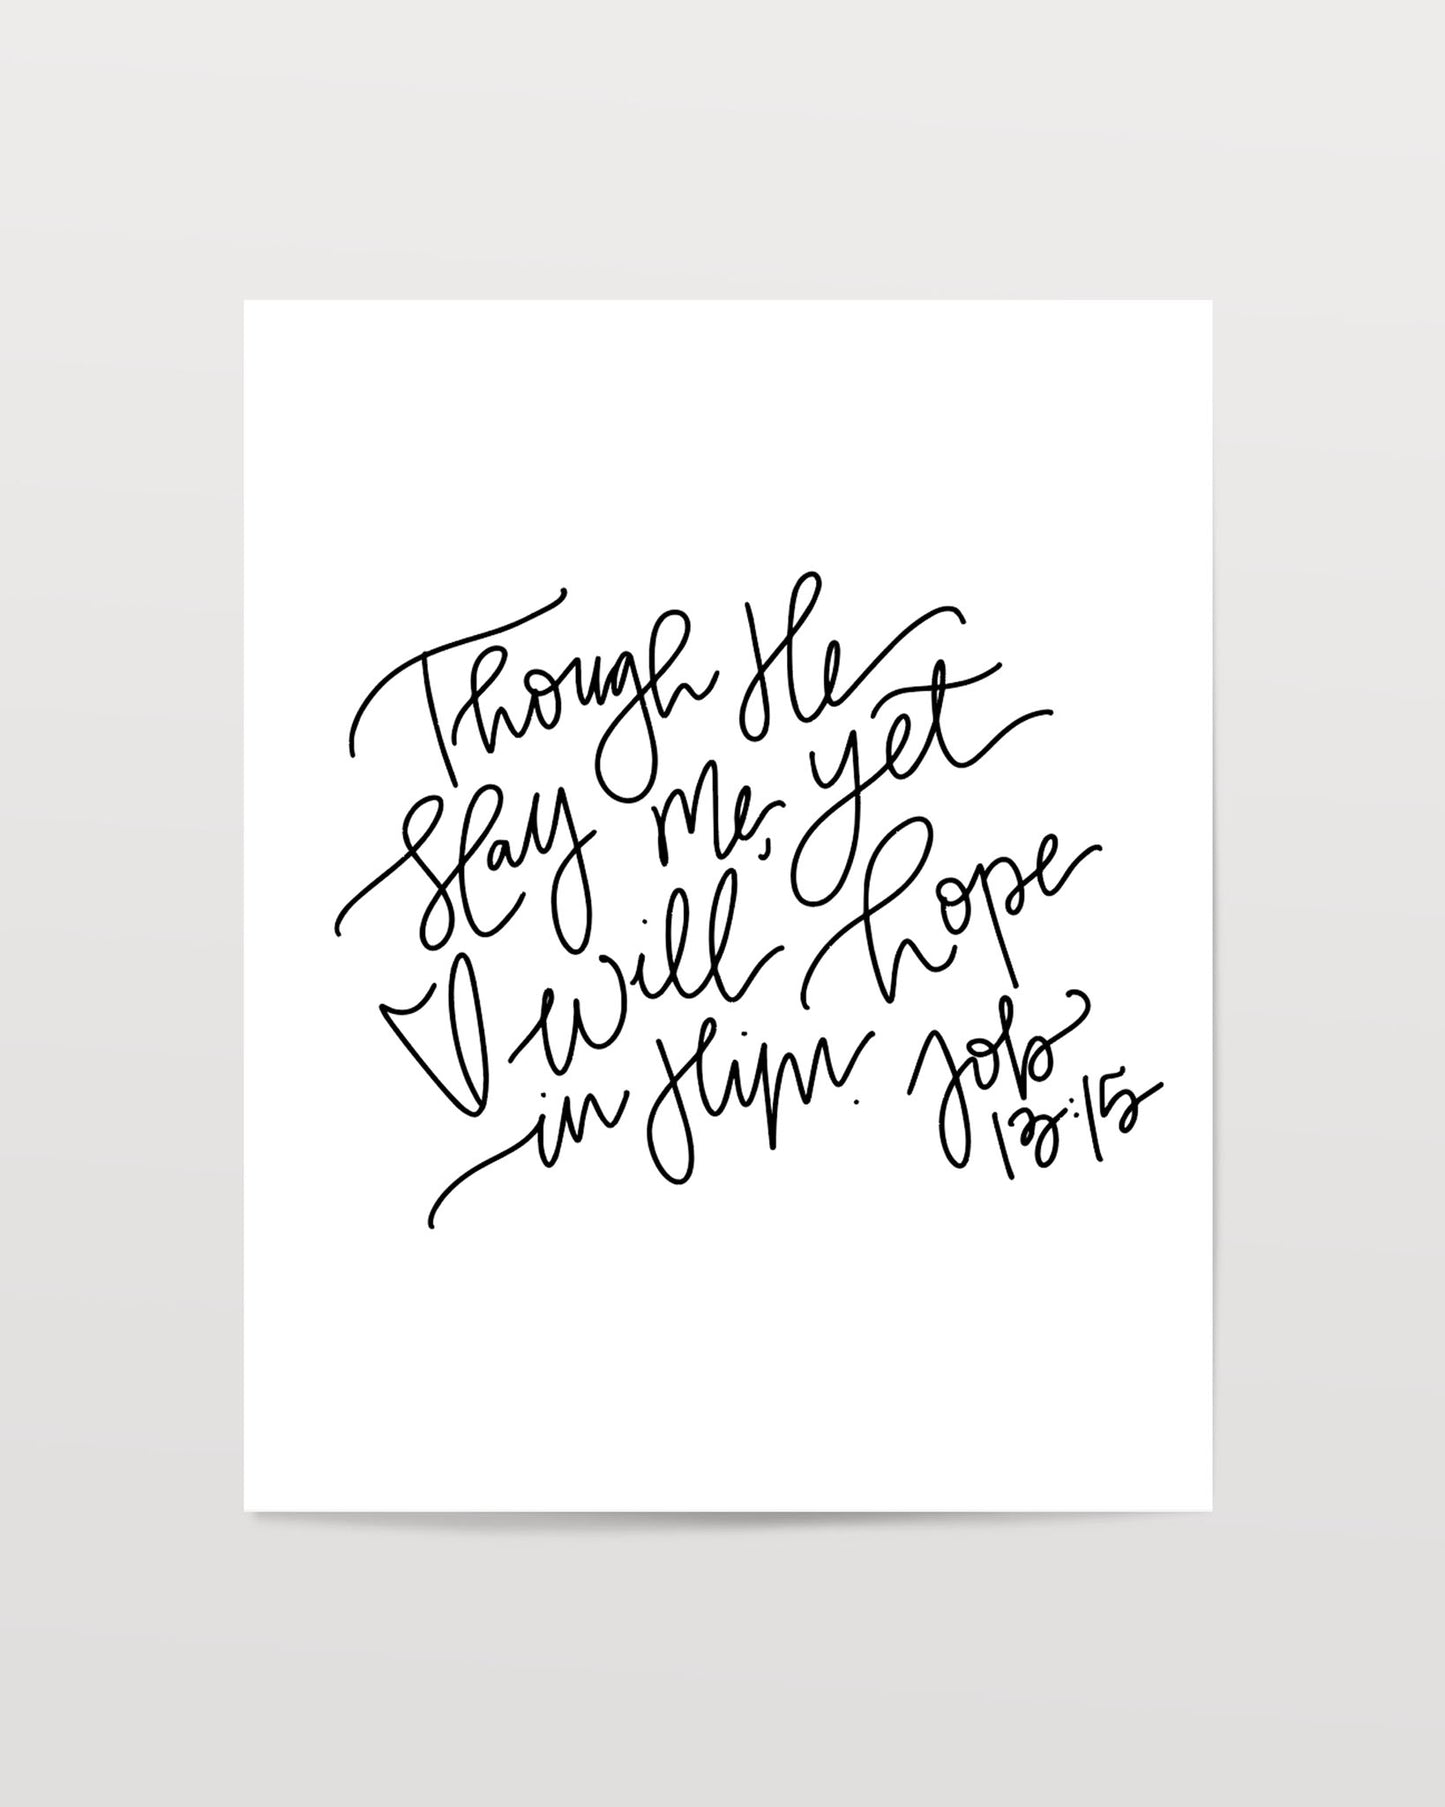 Though He
slay me, yet
I will hope
in Him. Job
13:15